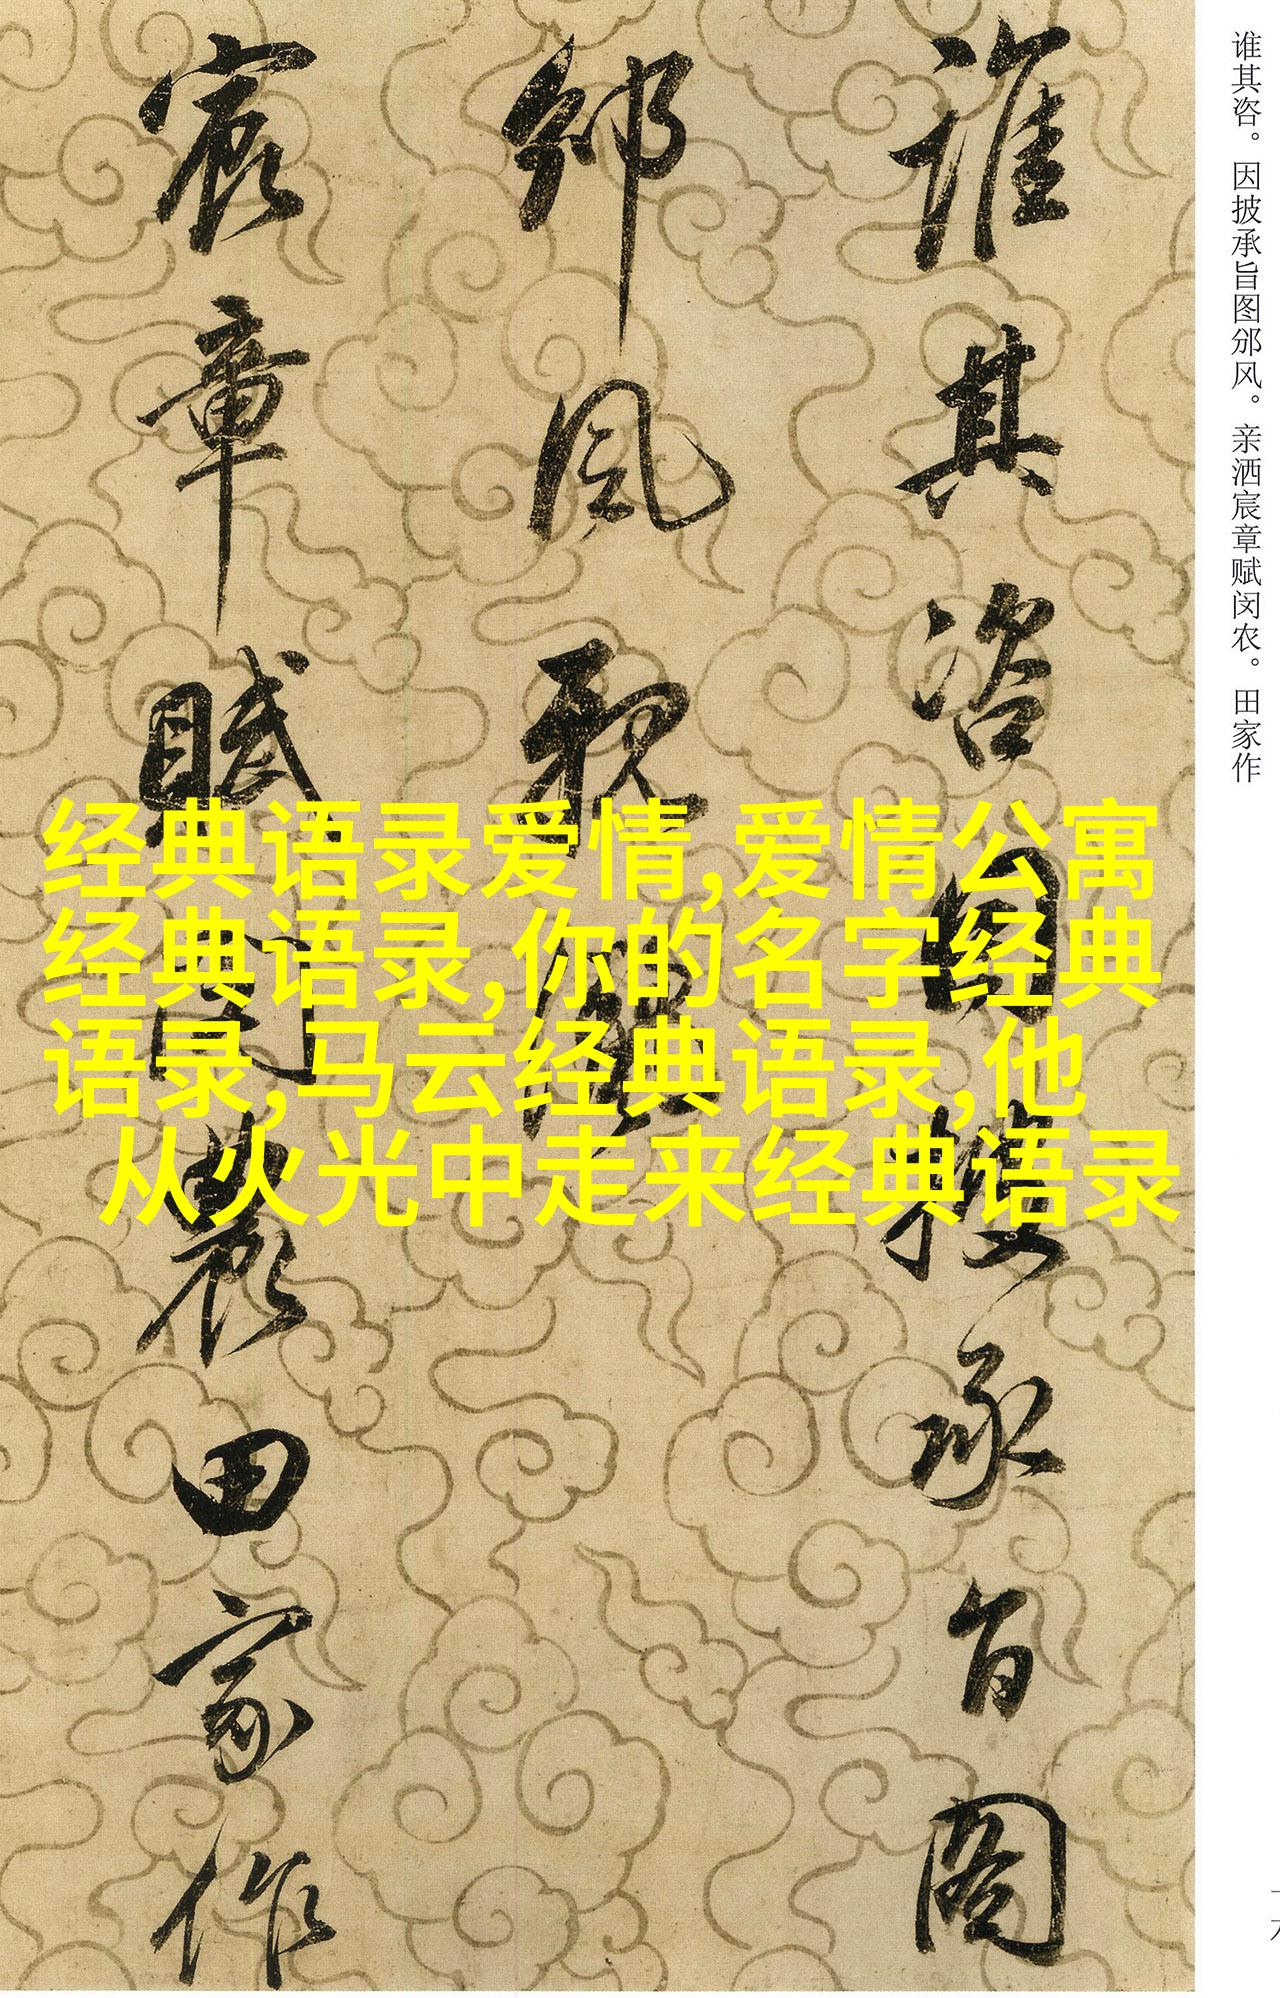 谁其咨。因披承旨图邠风。亲洒宸章赋闵农。田家作
誰其咨因披承旨圖
邠風親灑
宸章賦閔農田家作
经典语录爱情,爱情公寓
经典语录,你的名字经典
语录,马云经典语录,他
从火光中走来经典语录